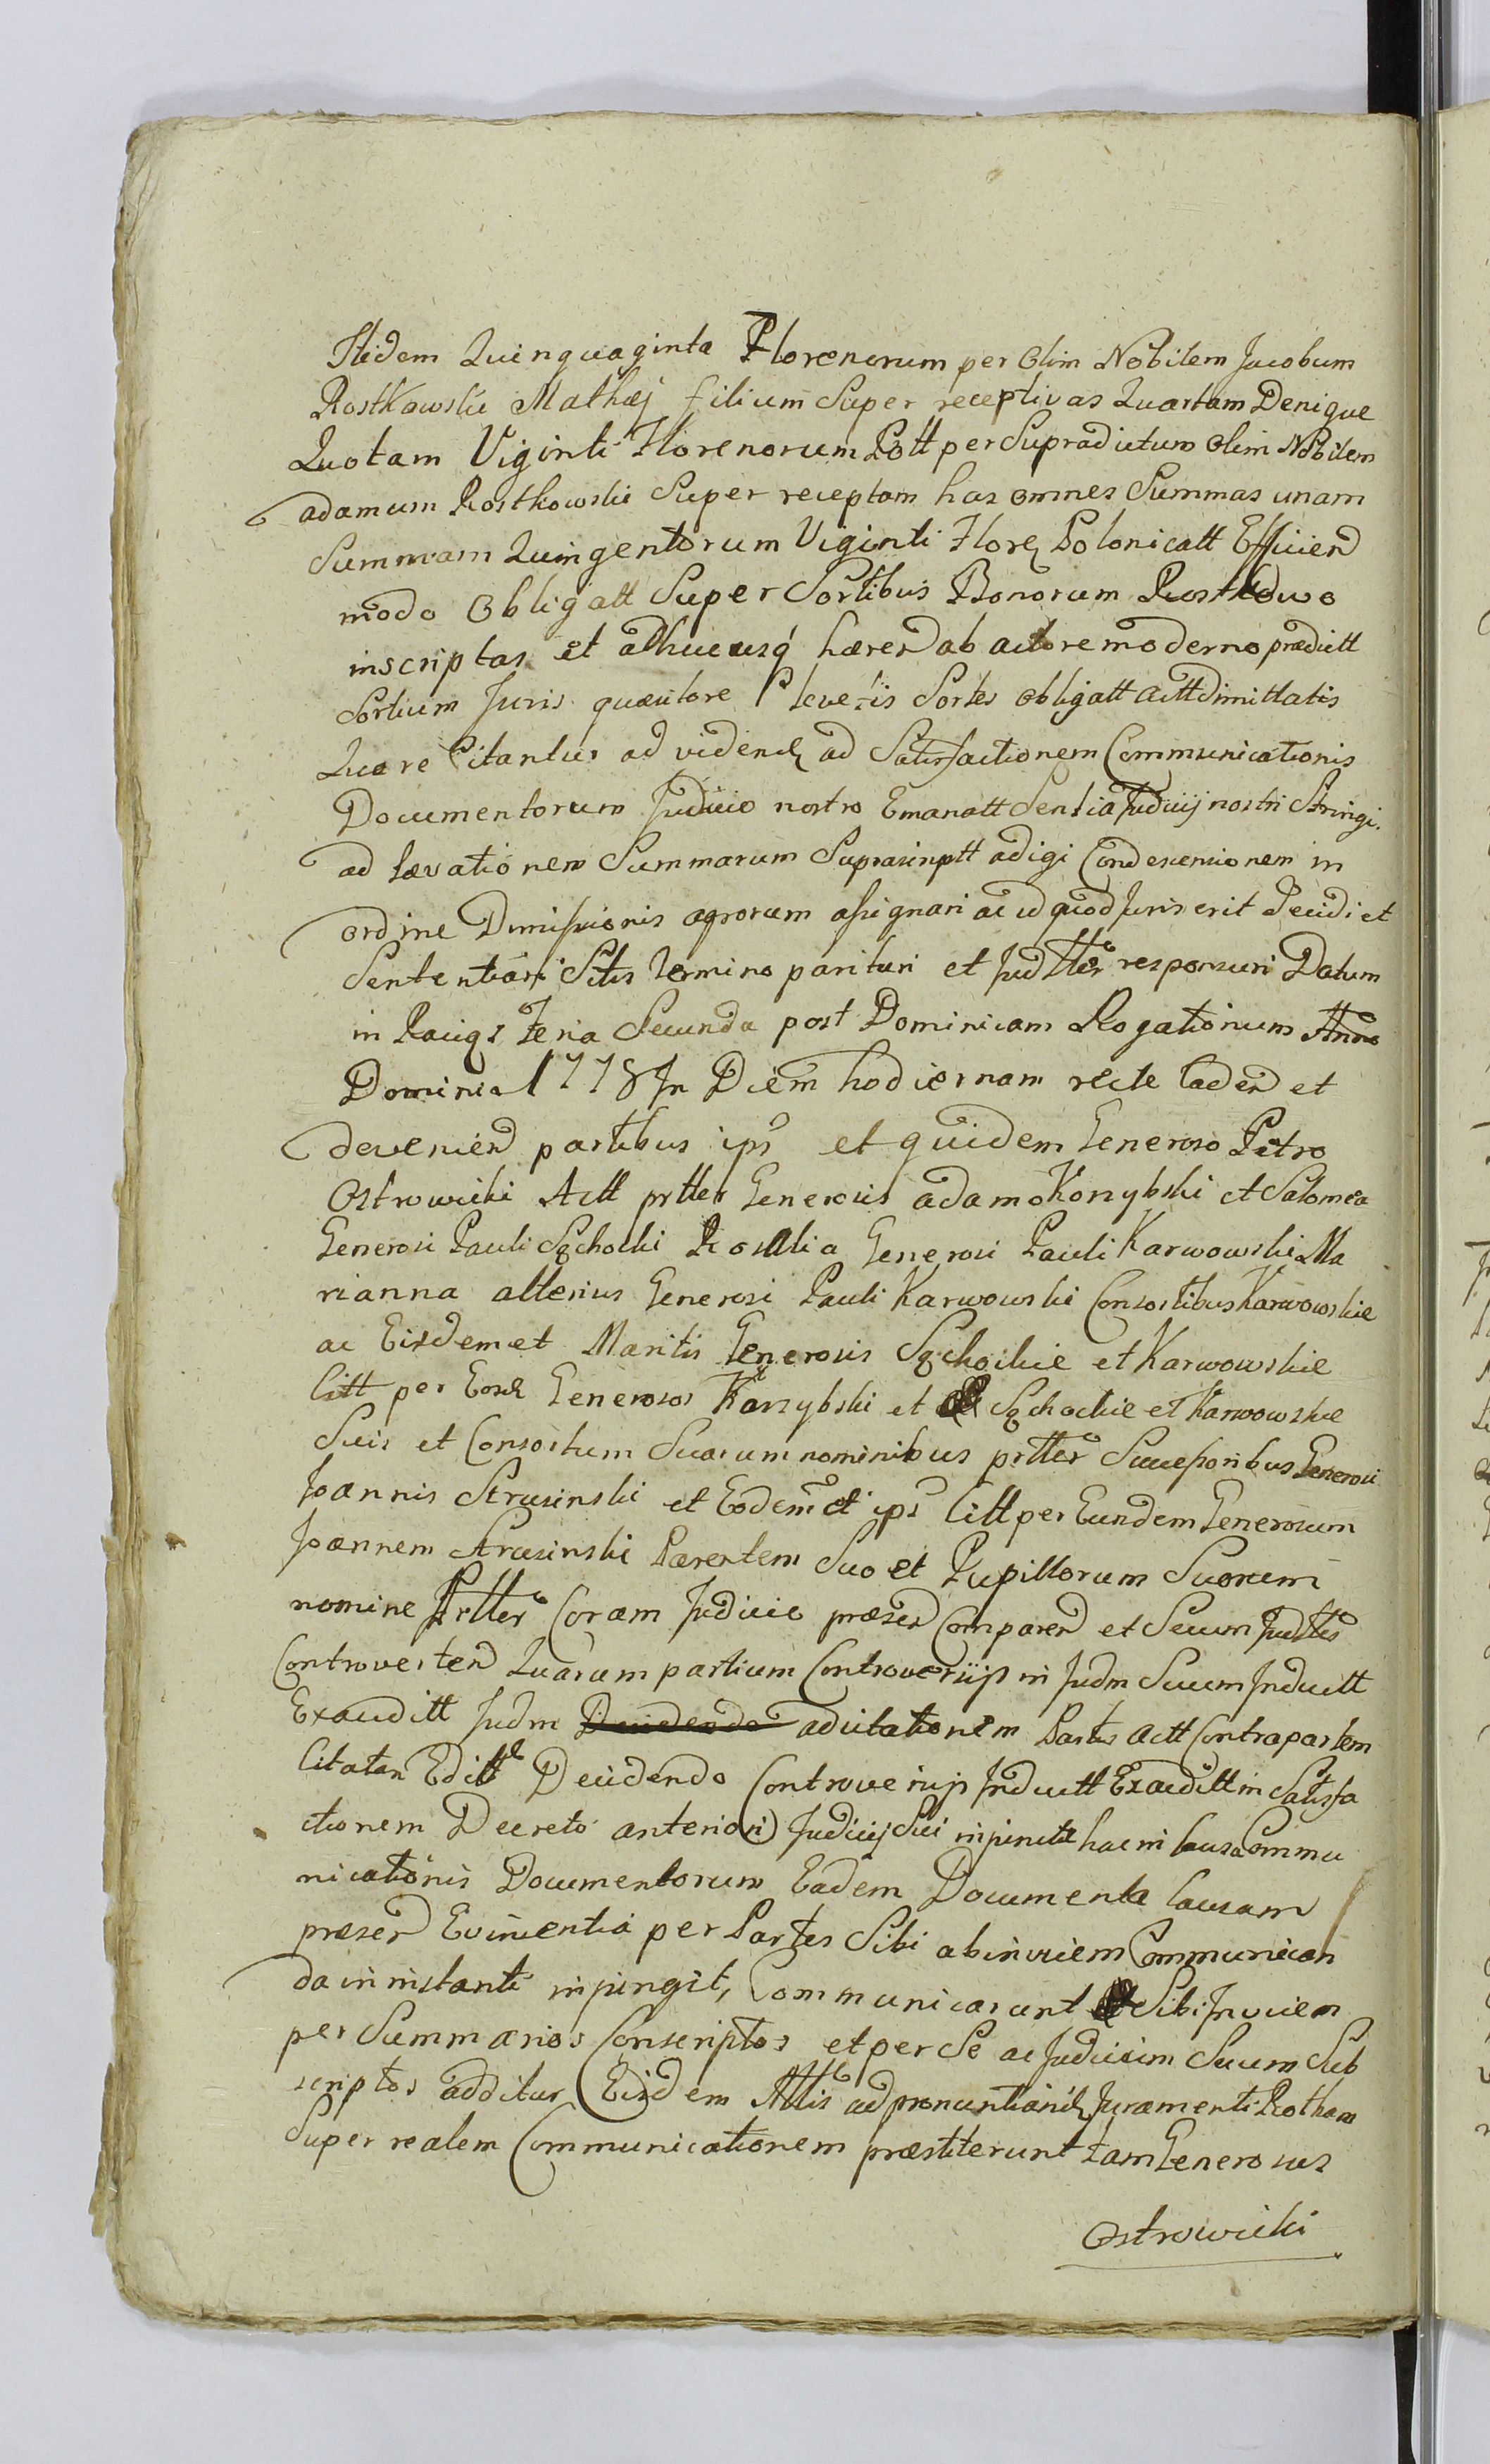 Itidem Quinquaginta Florenorum per olim Nobilem Jacobum
Rostkowski Mathæj filium Super receptivas Quartam Denique
Quotam Viginti Florenorum Poltt per Supradictum olim Nobilem
adamum Rostkowski Super receptam has omnes Summas unam
Summam Quingentorum Viginti Flor Polonicatt Efficien
modo obligatt Super Sortibus Bonorum Rostkowo
inscriptas et adhucusq hæren ab actore moderno prædictt
Sortium Juris quæsitore levetis Sortes obligatt Actt dimittatis
Quare Citantur ad vidend ad Satisfactionem Communicationis
Documentorum Judicio nostro Emanatt Sentia Judicij nostri Stringi
ad lævationem Summarum Suprascriptt adigi Condescensionem in
ordine Dimissionis agrorum assignari ac id quod Juris erit Decidi et
Sententiari Sitis termino parituri et Judtter responsuri Datum
in Raygr Feria Secunda post Dominicam Rogationum Anno
Domini 1778 In Diem hodiernam recte Caden et
devenien partibus ips et quidem Generoso Petro
Ostrowicki Actt prtter Generosis adamo Konybski et Salomea
Generosi Pauli Sąchocki Rosalia Generosi Pauli Karwowski Ma
rianna alterius Generosi Pauli Karwowski Consortibus Karwowskie
ac Eisdemet Maritis Generosis Sąchockie et Karwowskie
Citt per Eosd Generosos Konybski et Sąchockie et Karwowskie
Suis et Consortum Suarum nominibus prtter Successoribus Generosi
Joannis Strusinski et Eodemet ips Citt per Eundem Generosum
Joannem Strusinski Parentem Suo et Pupillorum Suorum
nomine Prtter Coram Judicio præsen Comparen et Secum Judtter
Controverten Quarum partium Controversijs in Judm Suum Inductt
Exauditt Judm Decidendo ad citationem Partis Actt Contra partem
Citatam Editt Decidendo Controversijs Inductt Exauditt in Satisfa
ctionem Decreto anteriori Judicij Sui injuncta hac in Causa Commu
nicationis Documentorum Eadem Documenta Causam
præsen Evincentia per Partes Sibi abinvicem Communican
da in instanti injungit, Communicarunt Sibi Invicem
per Summarios Conscriptos et per Se ac Judicium Suum Sub
scriptos additur Eisdem Attis ad pronuntiand Juramenti Rotham
Super realem Communicationem præstiterunt tam Generosus
Ostrowicki